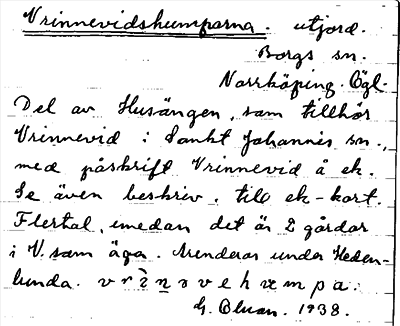 Vrinnevidshumparna. utjord.
Borgs sn.
Norrköping. Ögl.
Del av Husängen, som tillhör
Vrinnevid i Sankt Johannis sn.,
med påskrift Vrinnevid å ek.
Se även beskriv. till ek-kort.
Flertal, emedan det är 2 gårdar
i V. som äga. Arenderas under Heden-
lunda.
G. Olsan. 1938.